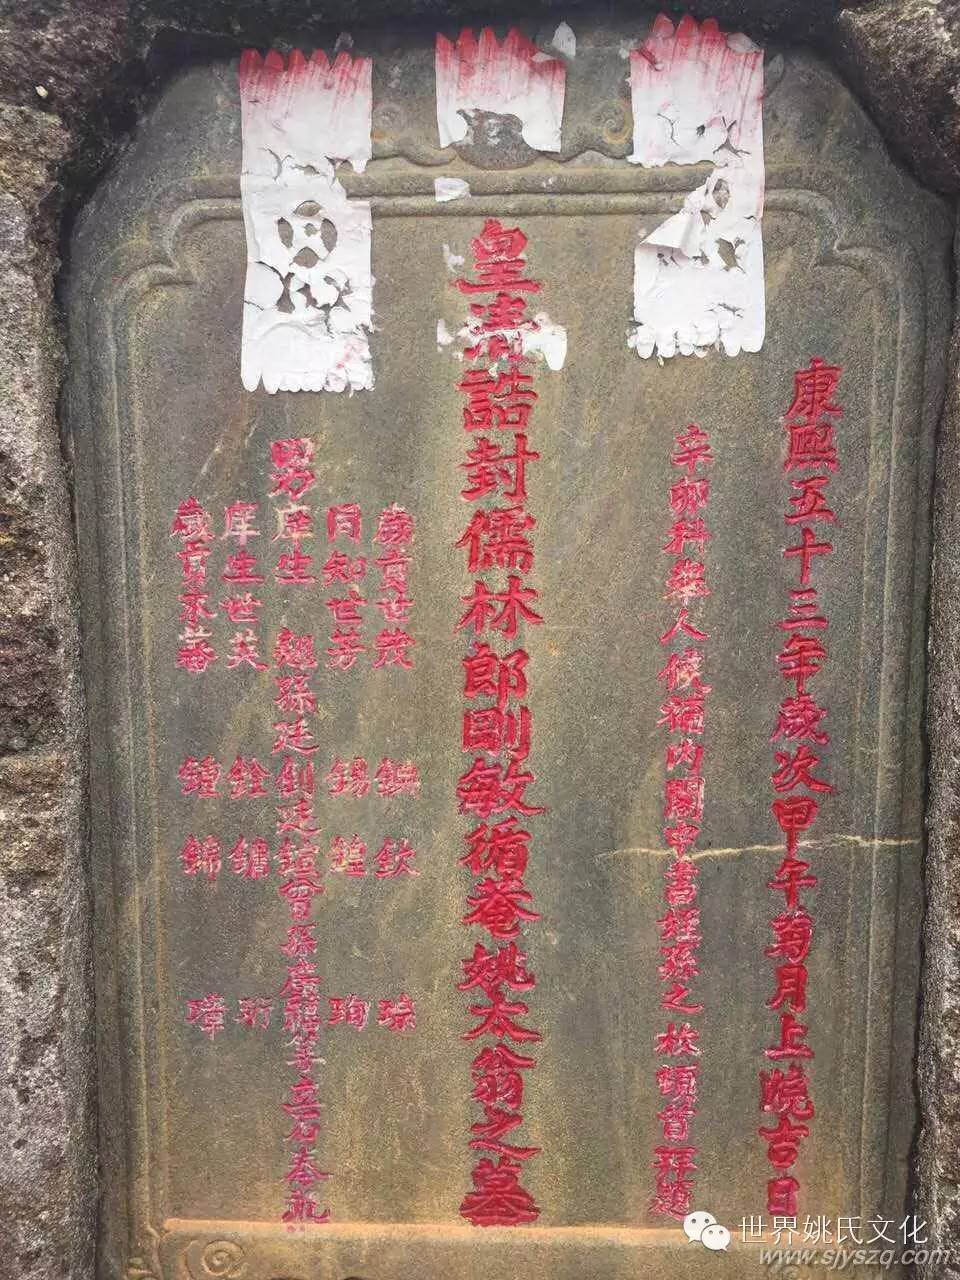 康熙五十三年歲次甲午菊月上浣吉日
辛卯科舉人候補內閣中書姪孫之枚頓首拜題
皇清誥封儒林郎剛敏循菴姚太翁之墓
歲貢世茂 欽 琮
同知世芳 錫 鍠 珣
男庠生 翹孫廷釗廷鍹曾孫 等立石奉祀
庠生世英 銓 鏞 珩
歲貢 鍾 錦 璋
世界姚氏文化
www.sjyszq.com